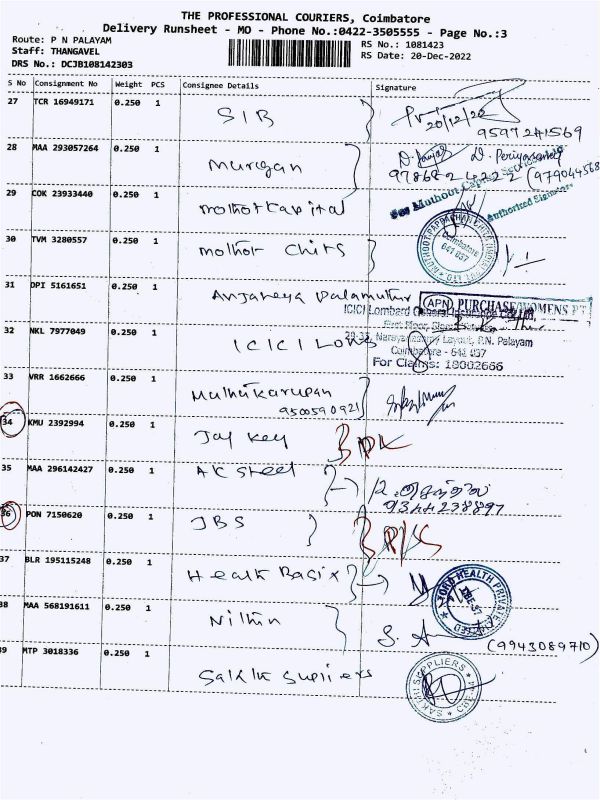 THE PROFESSIONAL COURIERS, Coimbatore
Delivery Runsheet - MO - Phone No.:0422-3505555 - Page No.:3
Route: P N PALAYAM
Staff: THANGAVEL
DRS No.: DCJB108142303
RS No.: 1081423
RS Date: 20-Dec-2022
S No Consignment No Weight PCS Consignee Details Signature
27 TCR 16949171 0.250 1 SIB
20/12/22
9597241569
28 MAA 293057264 0.250 1 Murugan
29 COK 23933440 0.250 1 mothot Kapital
For Muthoot Capital
Authorized Signatory
30 TVM 3280557 0.250 1 mothot Chits
Coimbatore
641 037
31 DPI 5161651 0.250 1 Anjaneya
(APN) PURCHASE/WOMENS PT
32 NKL 7977049 0.250 1 ICICI Lomb
ICICI Lombard General Insurance
Layout, P.N. Palayam
Coimbatore - 641 037
For Claims: 18002666
33 VRR 1662666 0.250 1 Muthukarupan
9500590921
34 KMU 2392994 0.250 1 Jay Key
35 MAA 296142427 0.250 1 AK Steel
9344238897
36 PON 7150620 0.250 1 JBS
37 BLR 195115248 0.250 1 Health Basix
HEALTH PRIVATE
38 MAA 568191611 0.250 1 Nithin
(9943089710)
39 MTP 3018336 0.250 1 Sakthi Supliers
SAKTHI SUPPLIERS